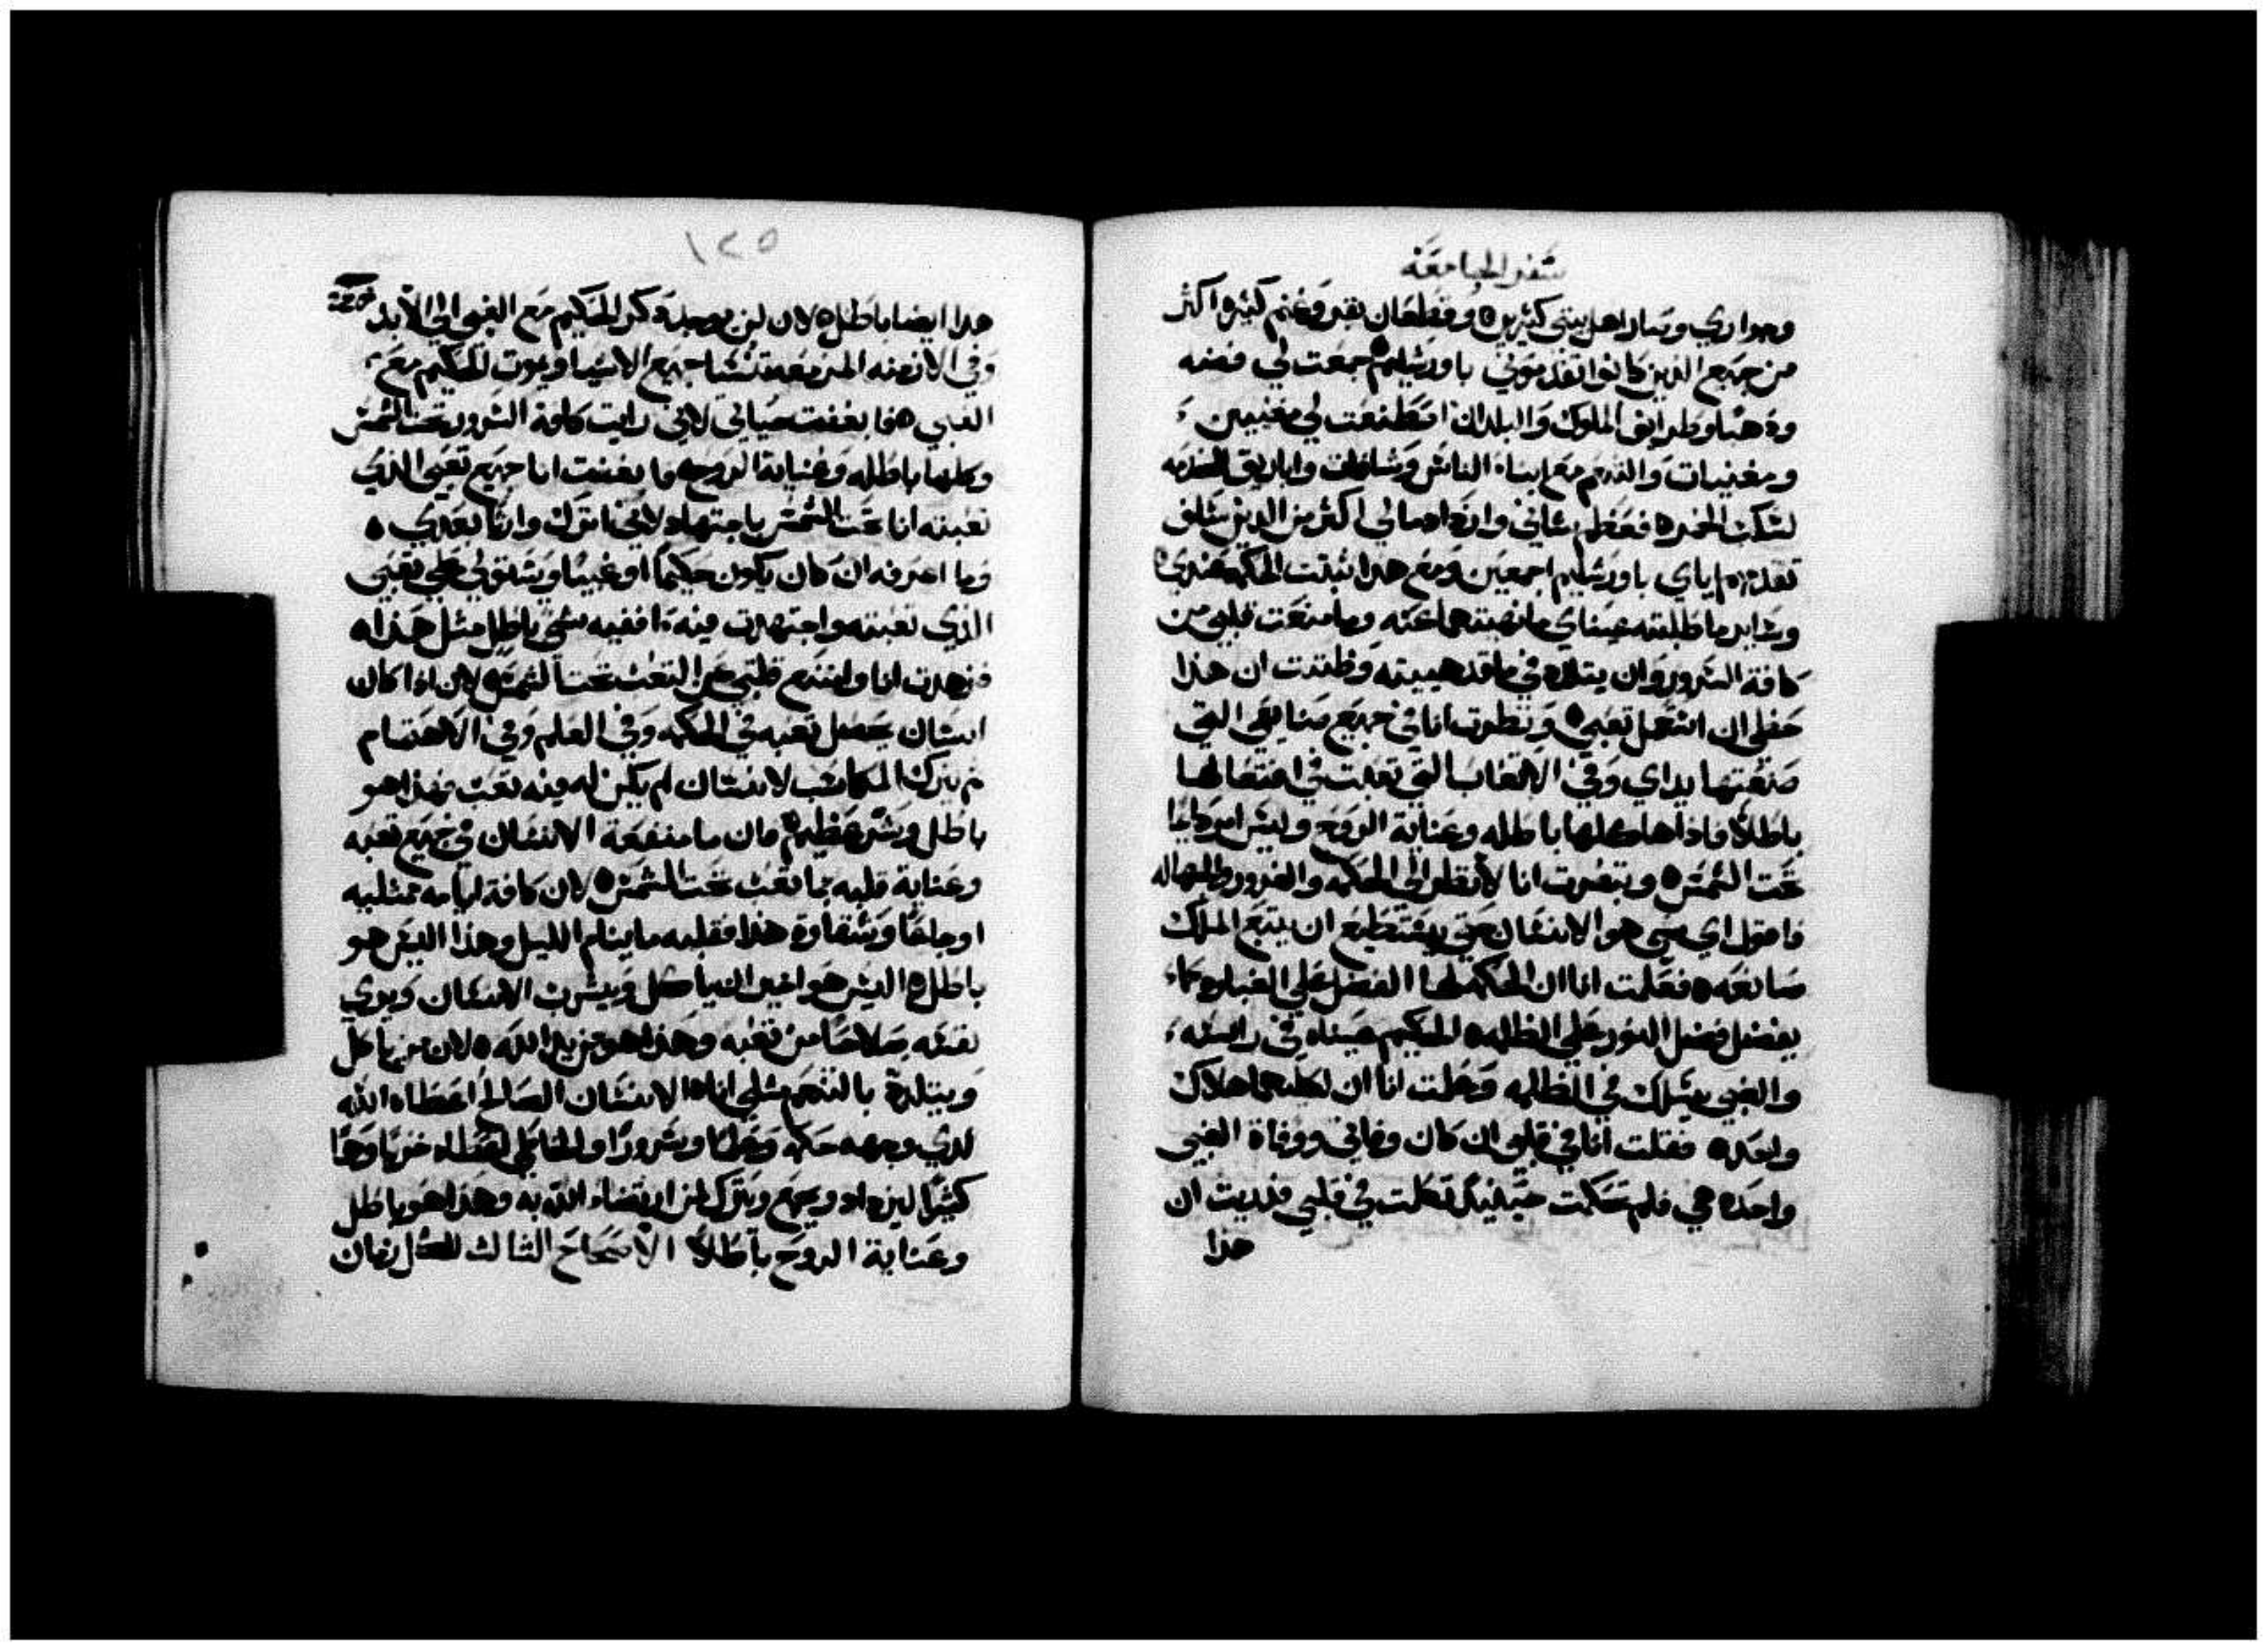 سفر الجامعة
وجواري وصار اهل بيتي كثيرين ه وقطعان بقر وغنم كثيره اكثر
من جميع الذين كانوا تقدموني باورشليم ه جمعت لي فضه
وذهبا وطرايف الملوك والبلدان اصطنعت لي مغنيين
ومغنيات والتنعم مع ابناء الناس وساقات واباريق الخدمه
لسكب الخمر ه فعظم شاني وازداد مالي اكثر من الذين سلف
تقدمهم اياي باورشليم اجمعين ومع هذا ثبتت الحكمه عندي ه
وساير ما طلبته عيناي ما نهيتهما عنه وما منعت قلبي من
كافة السرور وان يتلذذ في ما قد هييته وظننت ان هذا
حظي ان استعمل تعبي ه ونظرت انا في جميع صنايعي التي
صنعتها يداي وفي الاتعاب التي تعبت في افتعالها
باطلاً فاذا هي كلها باطله وعناية الروح وليس امر دايما
تحت الشمس ه وتبصرت انا لانظر الى الحكمه والغرور والجهاله
فاقول اي شي هو الانسان حتي يستطيع ان يتبع الملك
صانعه ه فعلمت انا ان الحكمه لها الفضل على الغباوه كما
يفضل فضل النور علي الظلمه ه الحكيم عيناه في راسه
والغبي يسلك في الظلمه وعلمت انا ان لكليهما هلاك
واحد ه فقلت انا في قلبي ان كان وفاتي ووفاة الغبي
واحده هي فلم تحكمت حينيذ تكلمت في قلبي فرايت ان
هذا
١٢٥
هذا ايضا باطل ه لان لن يوجد ذكر الحكيم مع الغبي الي الابد
وفي الازمنه المزمعه تنسا جميع الاشيا ويموت الحكيم مع
الغبي ه فابغضت حياتي لاني رايت كافة الشرور تحت الشمس
وكلها باطله وعناية الروح ه وابغضت انا جميع تعبي الذي
تعبته انا تحت الشمس باجتهاد لاني اترك وارثا بعدي ه
وما اعرفه ان كان يكون حكيماً او غبيا ويستولي علي تعبي
الذي تعبته واجتهدت فيه افيه شي باطل مثل هذا ه
فزهدت انا وامتنع قلبي عن التعب تحت الشمس ه لان اذا كان
انسان يجعل تعبه في الحكمه وفي العلم وفي الاهتمام
ثم يترك المكاسب لانسان لم يكن له فيه تعب فهذا هو
باطل وشر عظيم ه فان ما منفعة الانسان في جميع تعبه
وعناية قلبه بما تعب تحت الشمس ه لان كافة ايامه ممتليه
اوجاعاً وشقاوة هذا فقلبه ما ينام الليل وهذا اليس هو
باطل ه اليس هو اخير ان ياكل ويشرب الانسان ويري
نفسه صلاحاً من تعبه وهذا هو من يد الله ه لان من ياكل
ويتلذذ بالتنعم مثلي انا ه الانسان الصالح اعطاه الله
لدي وجهه حكمه وعلما وسروراً والخاطي اعطاه حزنا وهما
كثيراً ليزداد ويجمع ويترك لمن ارتضاء الله به وهذا هو باطل
وعناية الروح باطلاً الاصحاح الثالث لكل زمان